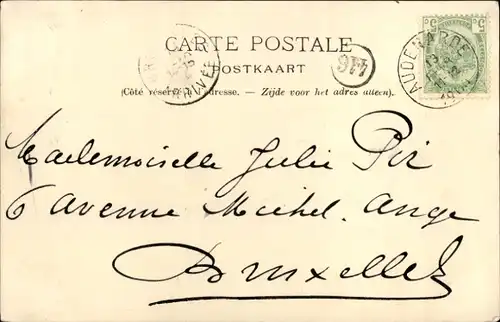 CARTE POSTALE
POSTKAART
(Côté réservé à l'adresse. – Zijde voor het adres alleen).
946
AUDENARDE
5 5
Mademoiselle Julie Pir
6 Avenue Michel. Ange
Bruxelles